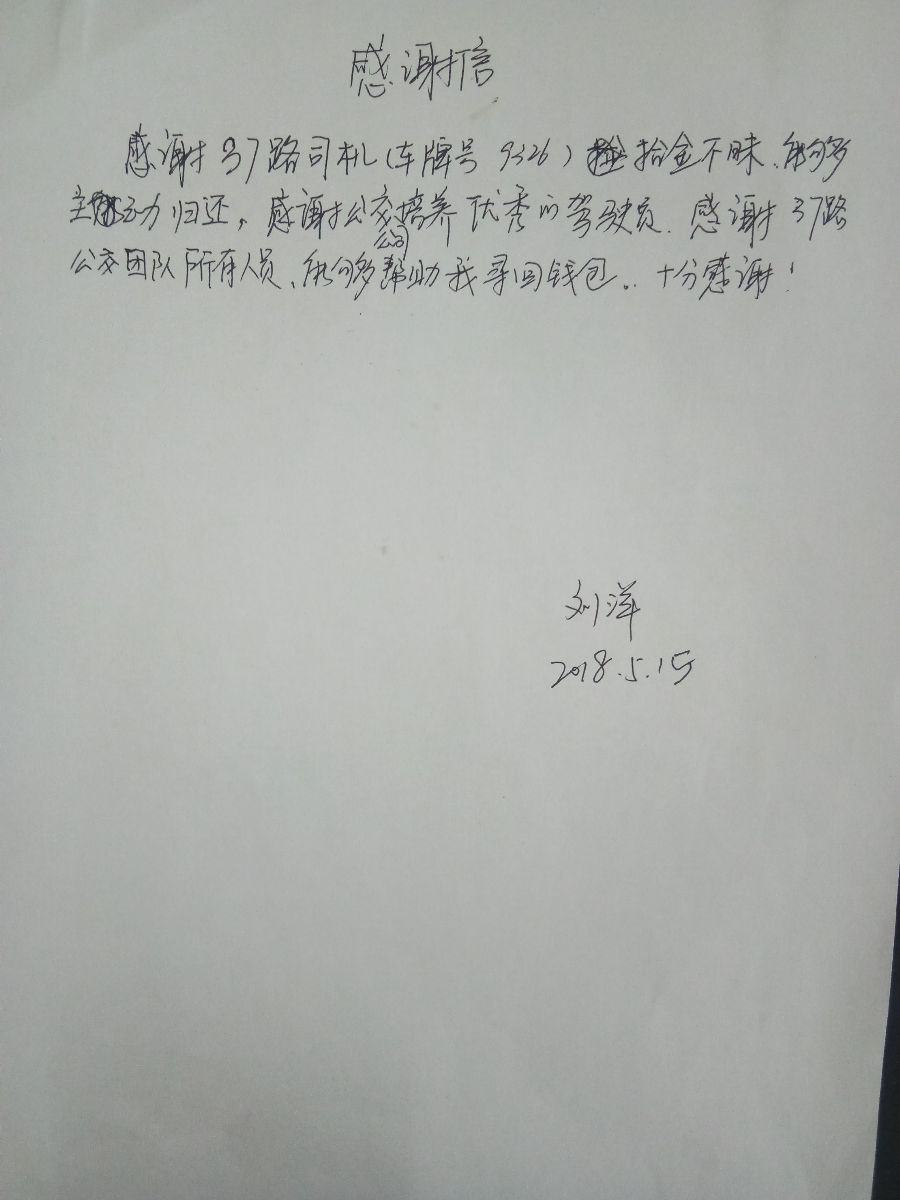 感谢信
感谢37路司机(车牌号 9326)拾金不昧、能够
主动归还,感谢公交公司培养优秀的驾驶员.感谢37路
公交团队所有人员、能够帮助我寻回钱包.. 十分感谢!
刘洋
2018.5.15